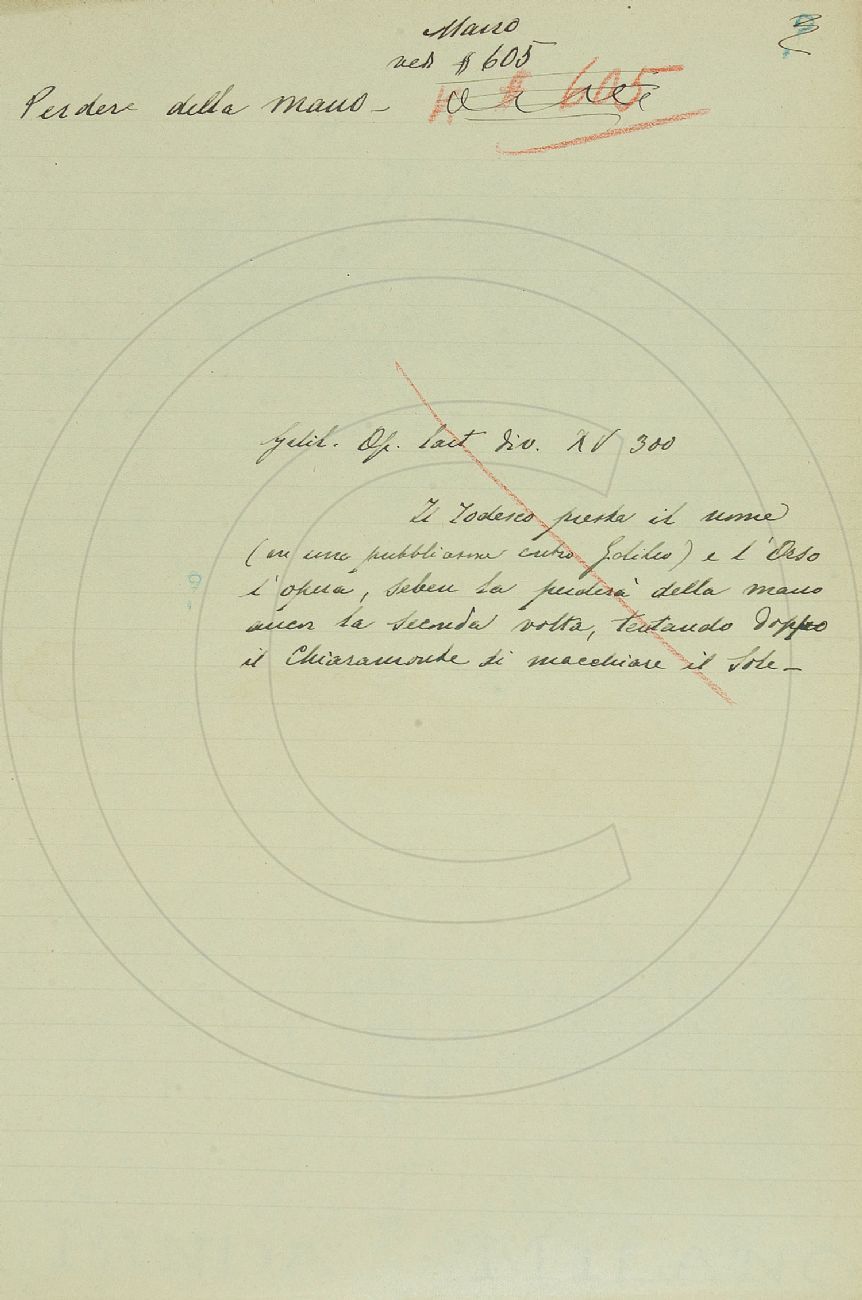 Mano
ved § 605
Perdere della mano - § 605
Galil. Op. Lett div. XV 300
Il Todesco presta il nome
(in una pubblicazione contro Galileo) e l'Orso
l'opera, seben la perderà della mano
ancor la seconda volta, tentando doppo
il Chiaramonte di macchiare il Sole -